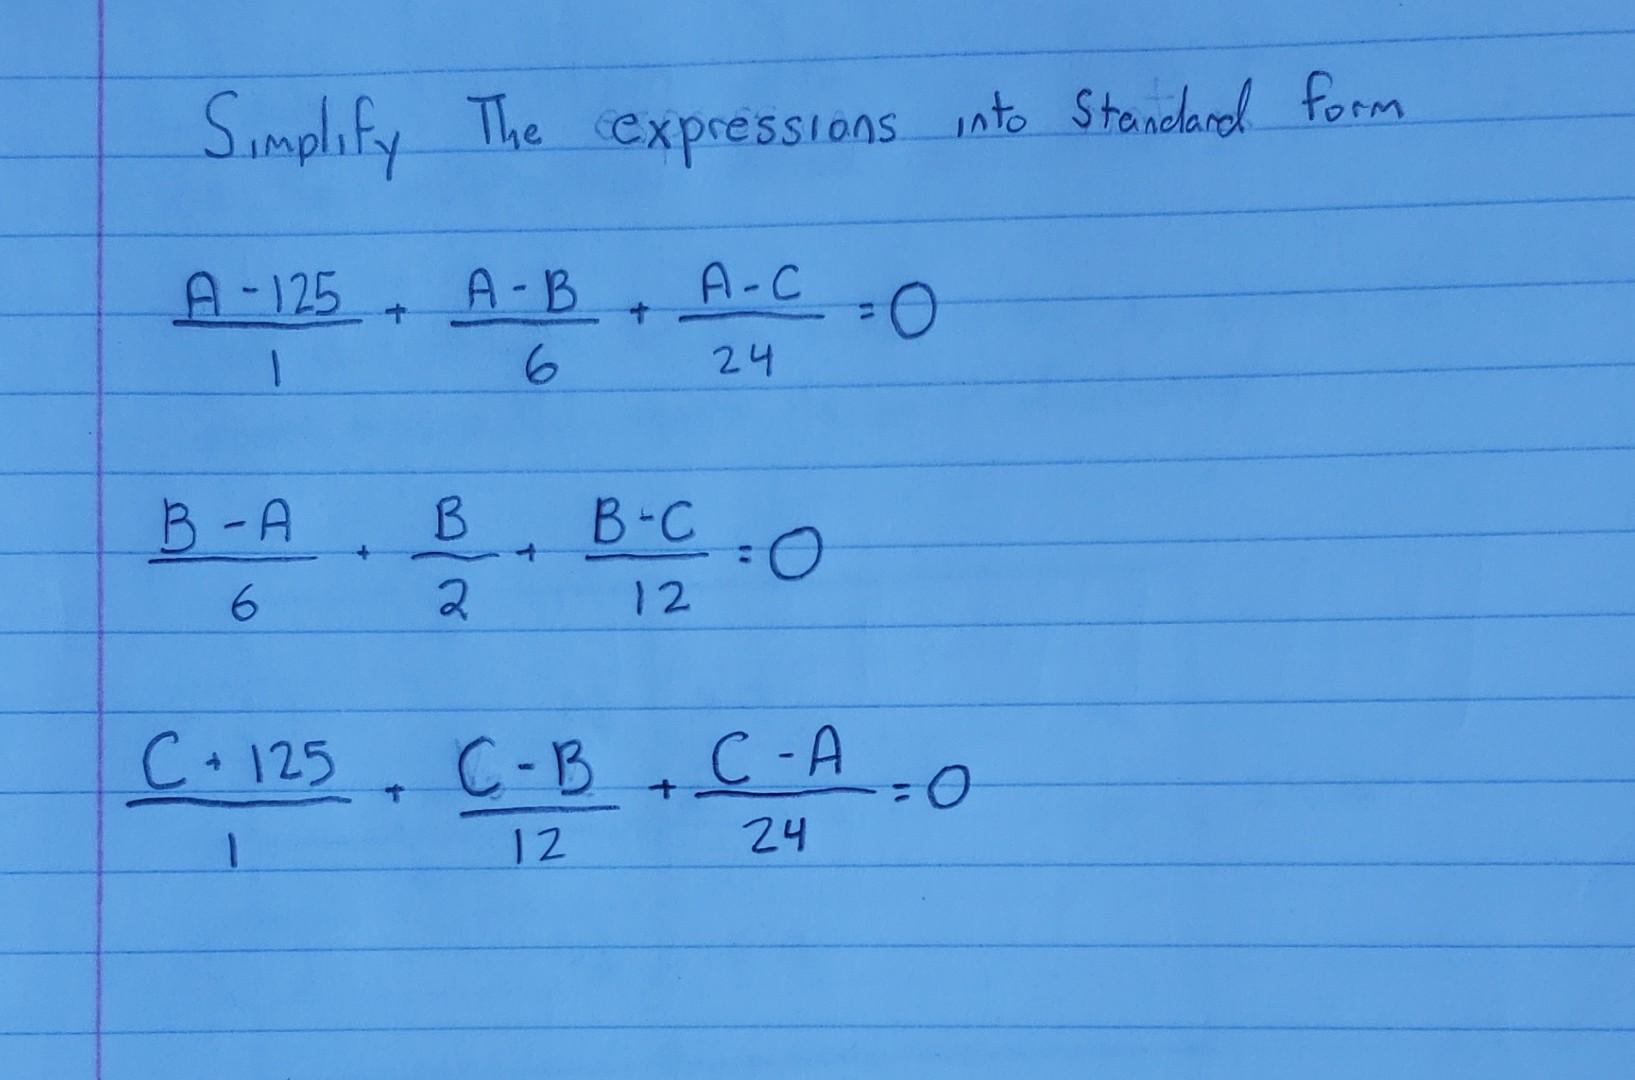 Simplify The expressions into Standard form
A - 125 / 1 + A - B / 6 + A - C / 24 = 0
B - A / 6 + B / 2 + B - C / 12 = 0
C + 125 / 1 + C - B / 12 + C - A / 24 = 0